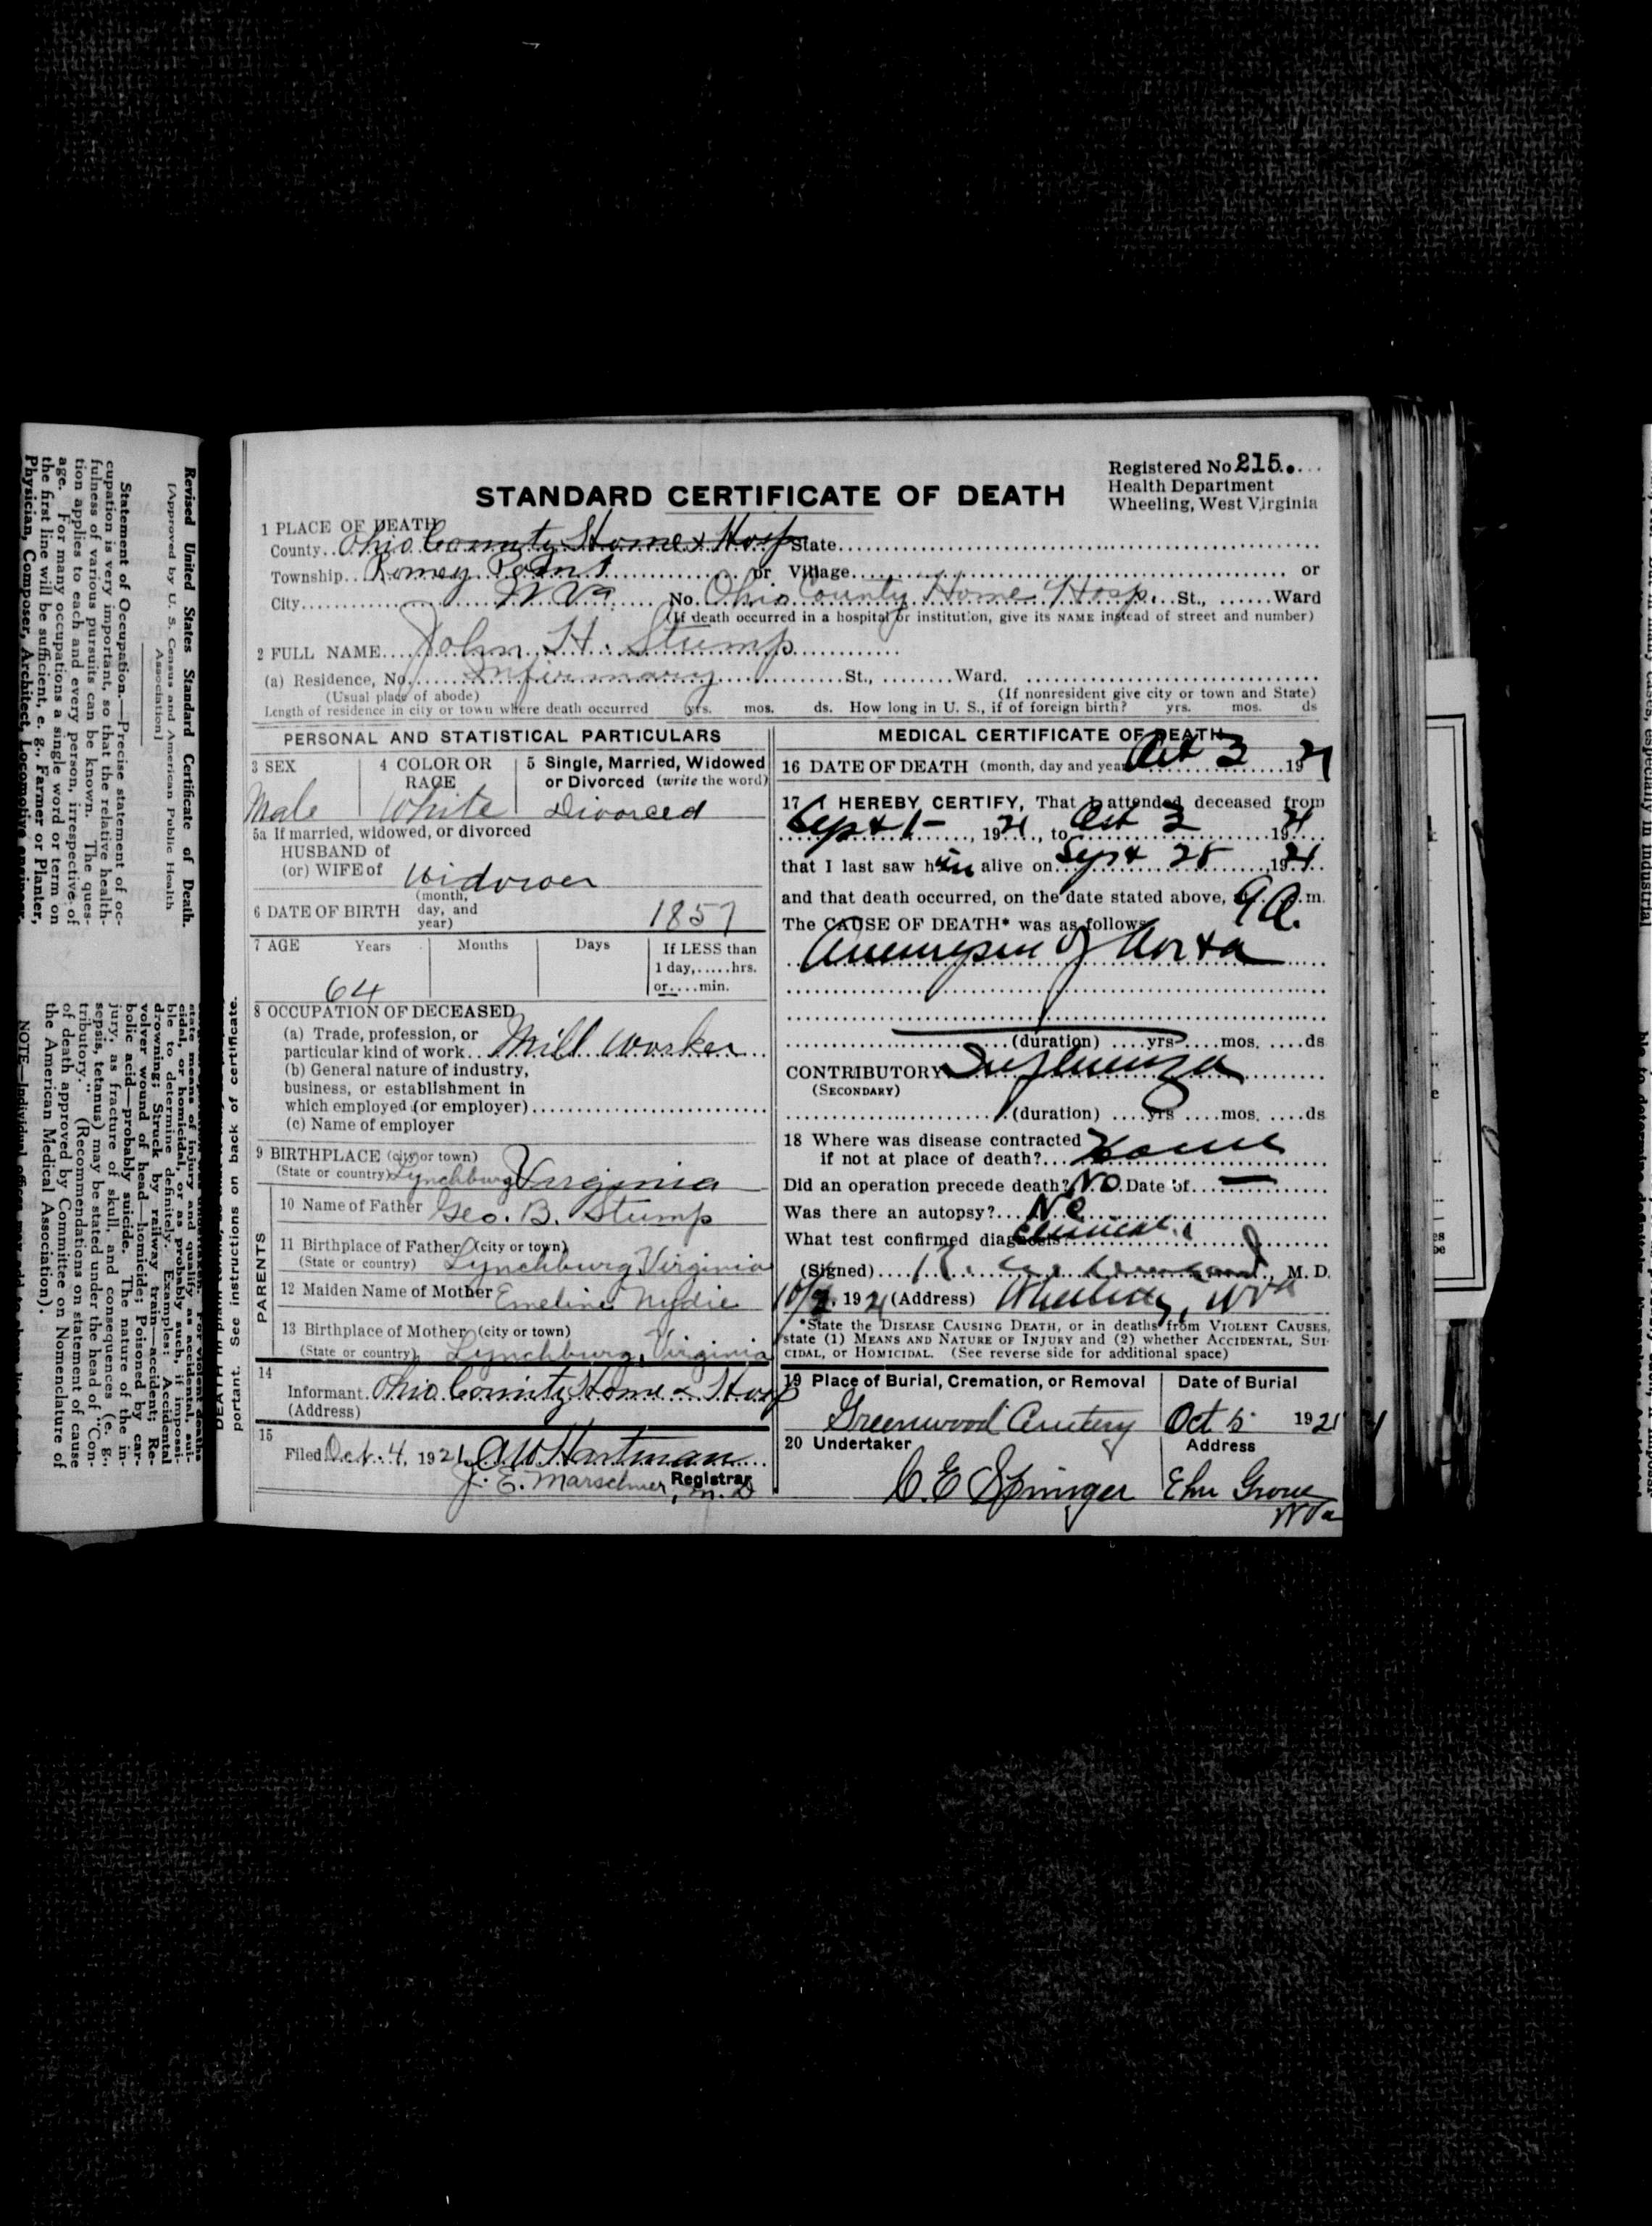 Registered No 215
Health Department
Wheeling, West Virginia
STANDARD CERTIFICATE OF DEATH
1 PLACE OF DEATH
County Ohio County Home & Hosp State
Township Romey Point or Village or
City W Va No. Ohio County Home Hosp. St., Ward
(If death occurred in a hospital or institution, give its NAME instead of street and number)
2 FULL NAME John H. Stump
(a) Residence, No. Infirmary St., Ward.
(Usual place of abode) (If nonresident give city or town and State)
Length of residence in city or town where death occurred yrs. mos. ds. How long in U. S., if of foreign birth? yrs. mos. ds
PERSONAL AND STATISTICAL PARTICULARS
3 SEX Male
4 COLOR OR RACE White
5 Single, Married, Widowed or Divorced (write the word) Divorced
5a If married, widowed, or divorced
HUSBAND of
(or) WIFE of widower
6 DATE OF BIRTH (month, day, and year) 1857
7 AGE Years Months Days If LESS than
1 day, hrs.
64 or min.
8 OCCUPATION OF DECEASED
(a) Trade, profession, or
particular kind of work Mill Worker
(b) General nature of industry,
business, or establishment in
which employed (or employer)
(c) Name of employer
9 BIRTHPLACE (city or town)
(State or country) Lynchburg Virginia
PARENTS
10 Name of Father Geo. B. Stump
11 Birthplace of Father (city or town)
(State or country) Lynchburg Virginia
12 Maiden Name of Mother Emeline Nydie
13 Birthplace of Mother (city or town)
(State or country) Lynchburg, Virginia
14
Informant Ohio County Home & Hosp
(Address)
15
Filed Oct. 4, 1921 A W Hartman
J. E. Marschner, M. D Registrar
MEDICAL CERTIFICATE OF DEATH
16 DATE OF DEATH (month, day and year) Oct 3 1921
17 I HEREBY CERTIFY, That I attended deceased from
Sept 1- , 1921, to Oct 3 1921
that I last saw him alive on Sept 28 , 1921
and that death occurred, on the date stated above, 9 A. m.
The CAUSE OF DEATH* was as follows
Aneurysm of Aorta
(duration) yrs mos. ds
CONTRIBUTORY Influenza
(SECONDARY)
(duration) yrs mos. ds
18 Where was disease contracted
if not at place of death? Home
Did an operation precede death? No Date of —
Was there an autopsy? No
What test confirmed diagnosis Clinical
(Signed) M. D.
1921 (Address) Wheeling, W Va
*State the DISEASE CAUSING DEATH, or in deaths from VIOLENT CAUSES,
state (1) MEANS AND NATURE OF INJURY and (2) whether ACCIDENTAL, SUI-
CIDAL, or HOMICIDAL. (See reverse side for additional space)
19 Place of Burial, Cremation, or Removal Date of Burial
Greenwood Cemetery Oct 5 1921
20 Undertaker Address
C. E Springer Elm Grove
W Va
portant. See instructions on back of certificate.
Revised United States Standard Certificate of Death.
[Approved by U. S. Census and American Public Health
Association]
Statement of Occupation.—Precise statement of oc-
cupation is very important, so that the relative health-
fulness of various pursuits can be known. The ques-
tion applies to each and every person, irrespective of
age. For many occupations a single word or term on
the first line will be sufficient, e. g., Farmer or Planter,
Physician, Composer, Architect, Locomotive engineer,
state means of injury and qualify as accidental, sui-
cidal, or homicidal, or as probably such, if impossi-
ble to determine definitely. Examples: Accidental
drowning; Struck by railway train—accident; Re-
volver wound of head—homicide; Poisoned by car-
bolic acid—probably suicide. The nature of the in-
jury, as fracture of skull, and consequences (e. g.,
sepsis, tetanus) may be stated under the head of "Con-
tributory." (Recommendations on statement of cause
of death approved by Committee on Nomenclature of
the American Medical Association).